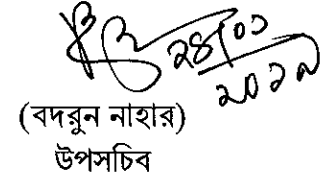 ২৪/০১
২০১৯
(বদরুন নাহার)
উপসচিব